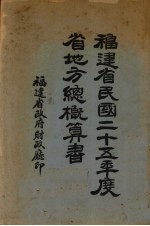 福建省民國二十五年度
省地方總概算書
福建省政府財政廳印